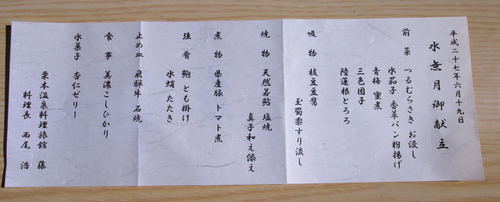 平成二十七年六月十九日
水無月御献立
前菜 つるむらさき お浸し
水茄子 香草パン粉揚げ
青梅 蜜煮
三色団子
陸蓮根とろろ
吸物 枝豆豆腐
玉蜀黍すり流し
焼物 天然若鮎 塩焼
真子和え添え
煮物 県産豚 トマト煮
強肴 鮑 とも掛け
水蛸 たたき
止め皿 飛騨牛 石焼
食事 美濃こしひかり
水菓子 杏仁ゼリー
栗本温泉料理旅館 藤
料理長 西尾 浩